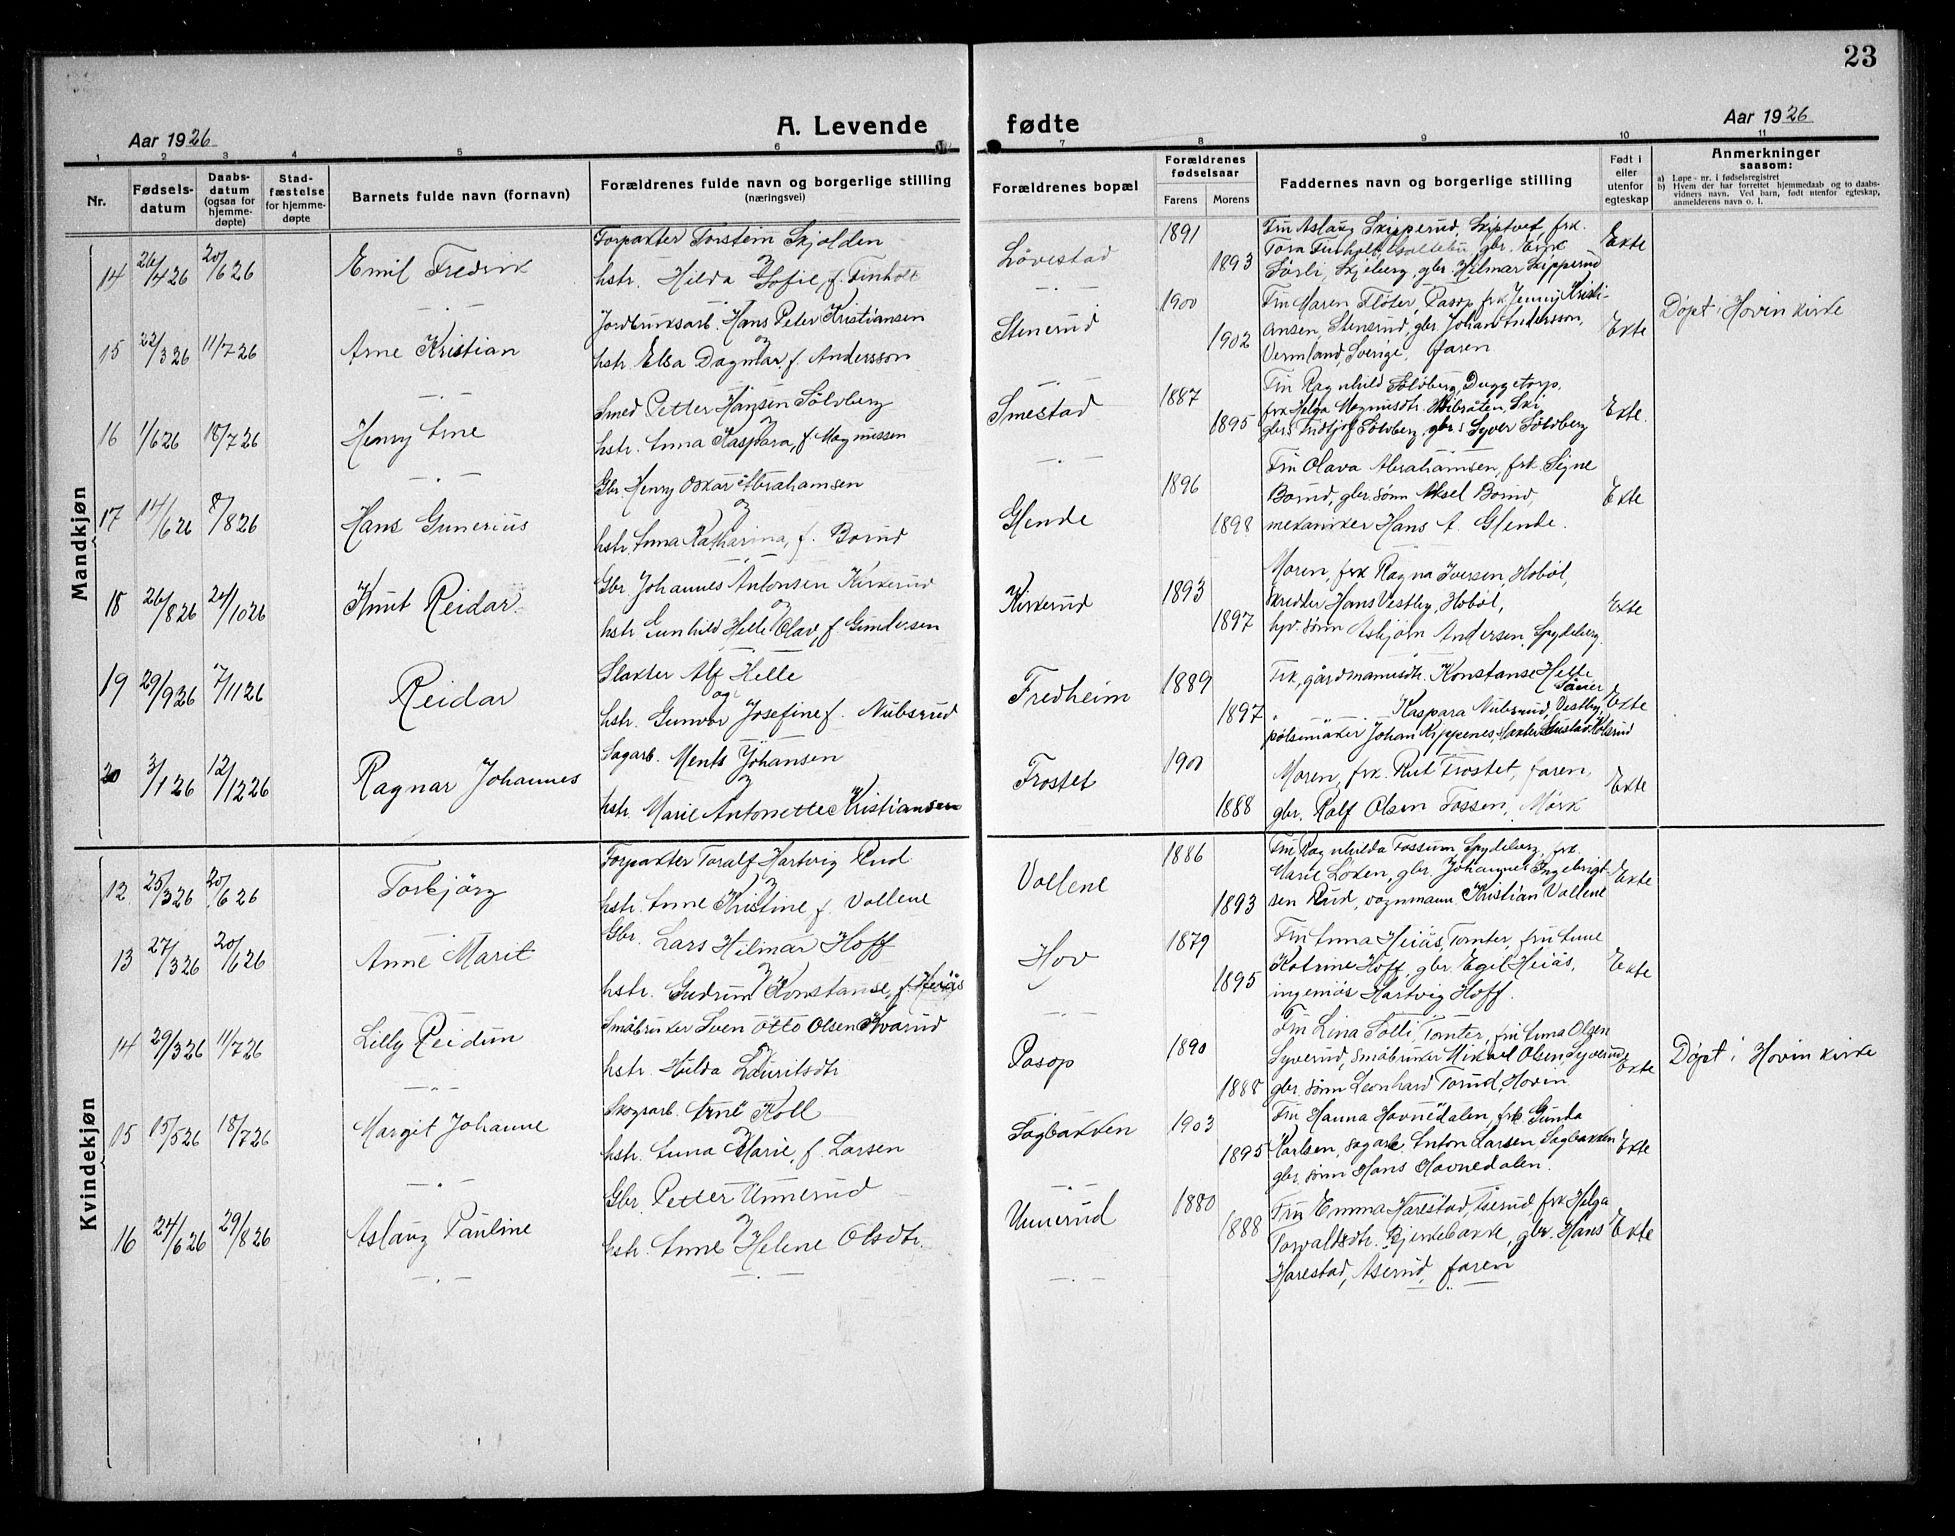 23
Aar 1926
A. Levende
fødte
Aar 1926
1 2 3 4 5 6 7 8 9 10 11
Nr.
Fødsels-
datum
Daabs-
datum
(ogsaa for
hjemme-
døpte)
Stad-
fæstelse
for hjemme-
døpte
Barnets fulde navn (fornavn)
Forældrenes fulde navn og borgerlige stilling
(næringsvei)
Forældrenes bopæl
Forældrenes
fødselsaar
Farens
Morens
Faddernes navn og borgerlige stilling
Født i
eller
utenfor
egteskap
Anmerkninger
saasom:
a) Løpe-nr. i fødselsregistret
b) Hvem der har forrettet hjemmedaab og to daabs-
vidners navn. Ved barn, født utenfor egteskap,
anmelderens navn o. l.
Mandkjøn
14 26/4 26 20/6 26 Emil Fredrik
Forpakter Torstein Skjolden
og
hstr. Hilda Sofie, f. Finholt
Lövestad
1891
1893
Fru Aslaug Skipperud, Skiptvet, frk.
Tora Finholt, gbr. Erik
Sørli, Skjeberg, gbr. Hilmar Skipperud
Ekte
15 22/3 26 11/7 26 Arne Kristian
Jordbruksarb. Hans Peter Kristiansen
og
hstr. Elsa Dagmar f. Andersson
Stenerud
1900
1902
Fru Maren Fløter, Pasop, frk. Jenny Kristi-
ansen, Stensrud, gbr. Johan Andersson,
Vermland, Sverige, faren
Ekte
Døpt i Hovin kirke
16 1/6 26 18/7 26 Henry Arne
Smed Petter Hansen Sölvberg
og
hstr. Anna Kaspara, f. Magnussen
Smestad
1887
1895
Fru Ragnhild Sölvberg, Duggetorp,
frk Helga Magnusdtr. Ski
gbrs. Fridtjof Sölvberg, gbrs. Syver Sölvberg
Ekte.
17 14/6 26 8/8 26 Hans Gunerius
Gbr. Henry Oskar Abrahamsen
og
hstr. Anna Katharina, f. Borud
Glende
1896
1898
Fru Olava Abrahamsen, frk. Signe
Borud, gbr.sönn Aksel Borud,
mekaniker Hans A. Glende.
Ekte
18 26/8 26 24/10 26 Knut Reidar
Gbr Johannes Antonsen Kirkerud
og
hstr Gunhild Helle Olav, f Gundersen
Kirkerud
1893
1897
Moren, frk Ragna Iversen, Hobøl,
skredder Hans Vestby, Hobøl,
hpr. sönn Asbjørn Andersen, Spydeberg.
Ekte
19 29/9 26 7/11 26 Reidar
Slakter Alf Helle
og
hstr. Gunvor Josefine f. Nubsrud
Fredheim
1889
1897
Frk, gårdmannsdtr. Konstanse Helle
Såner
" Kaspara Nubsrud, Vestby,
pølsemaker Johan Kippenes, slakter Gustad Kolsrud
Ekte
20 3/1 26 12/12 26 Ragnar Johannes
Sagarb. Ments Johansen
og
hstr. Marie Antonette Kristiansen
Frostet
1900
1888
Moren, frk. Rut Frostet, faren,
gbr. Ralf Olsen Fossen, Mörk
Ekte
Kvindekjøn
12 25/3 26 20/6 26 Torbjörg
Forpakter Toralf Hartvig Rud
og
hstr. Anne Kristine f. Vollene
Vollene
1886
1893
Fru Ragnhilda Fossum Spydeberg, frk.
Marie Löken, gbr. Johannes Ingebrigt-
sen Rud, vognmann Kristian Vollene
Ekte
13 27/3 26 20/6 26 Anne Marit
Gbr. Lars Hilmar Hoff
og
hstr. Gudrun Konstanse, f. Heiås
Hov
1879
1895
Fru Anna Heiås, Tomter, fru Anne
Katrine Hoff, gbr. Egil Heiås,
ingeniör Hartvig Hoff.
Ekte
14 29/3 26 11/7 26 Lilly Reidun
Småbruker Sven Otto Olsen Kvarud
og
hstr. Hulda Lauritsdtr
Pasop
1890
1888
Fru Lina Solli, Tomter, fru Anna Olsen
Syverud, småbruker Mikael Olsen, Syverud,
gbr. sönn Leonhard Torud Hovin
Ekte
Døpt i Hovin kirke
15 15/5 26 18/7 26 Margit Johanne
Skogsarb. Arne Koll
og
hstr. Anna Marie, f. Larsen
Sagbakken
1903
1895
Fru Hanna Hovnedalen, frk Gunda
Karlsen, sagarb. Anton Larsen Sagbakken
gbr. sönn Hans Havnedalen.
Ekte
16 24/6 26 29/8 26 Aslaug Pauline
Gbr. Petter Unnerud
og
hstr. Anne Helene Olsdtr.
Unnerud
1880
1888
Fru Emma Harestad, Aserud, frk Helga
Torvaldsdtr. Bjerkebakke, gbr. Hans
Harestad, Aserud, faren
Ekte